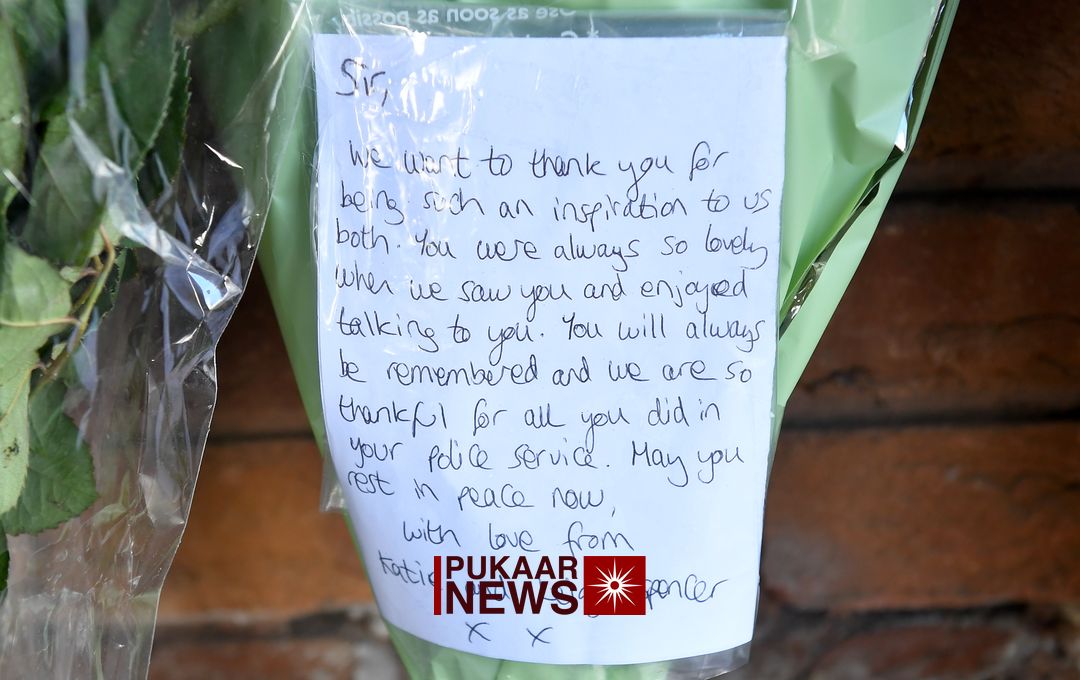 Use as soon as possib
Sir,
We want to thank you for
being such an inspiration to us
both. You were always so lovely
when we saw you and enjoyed
talking to you. You will always
be remembered and we are so
thankful for all you did in
your police service. May you
rest in peace now,
with love from
Katie and Spencer
x x
PUKAAR
NEWS